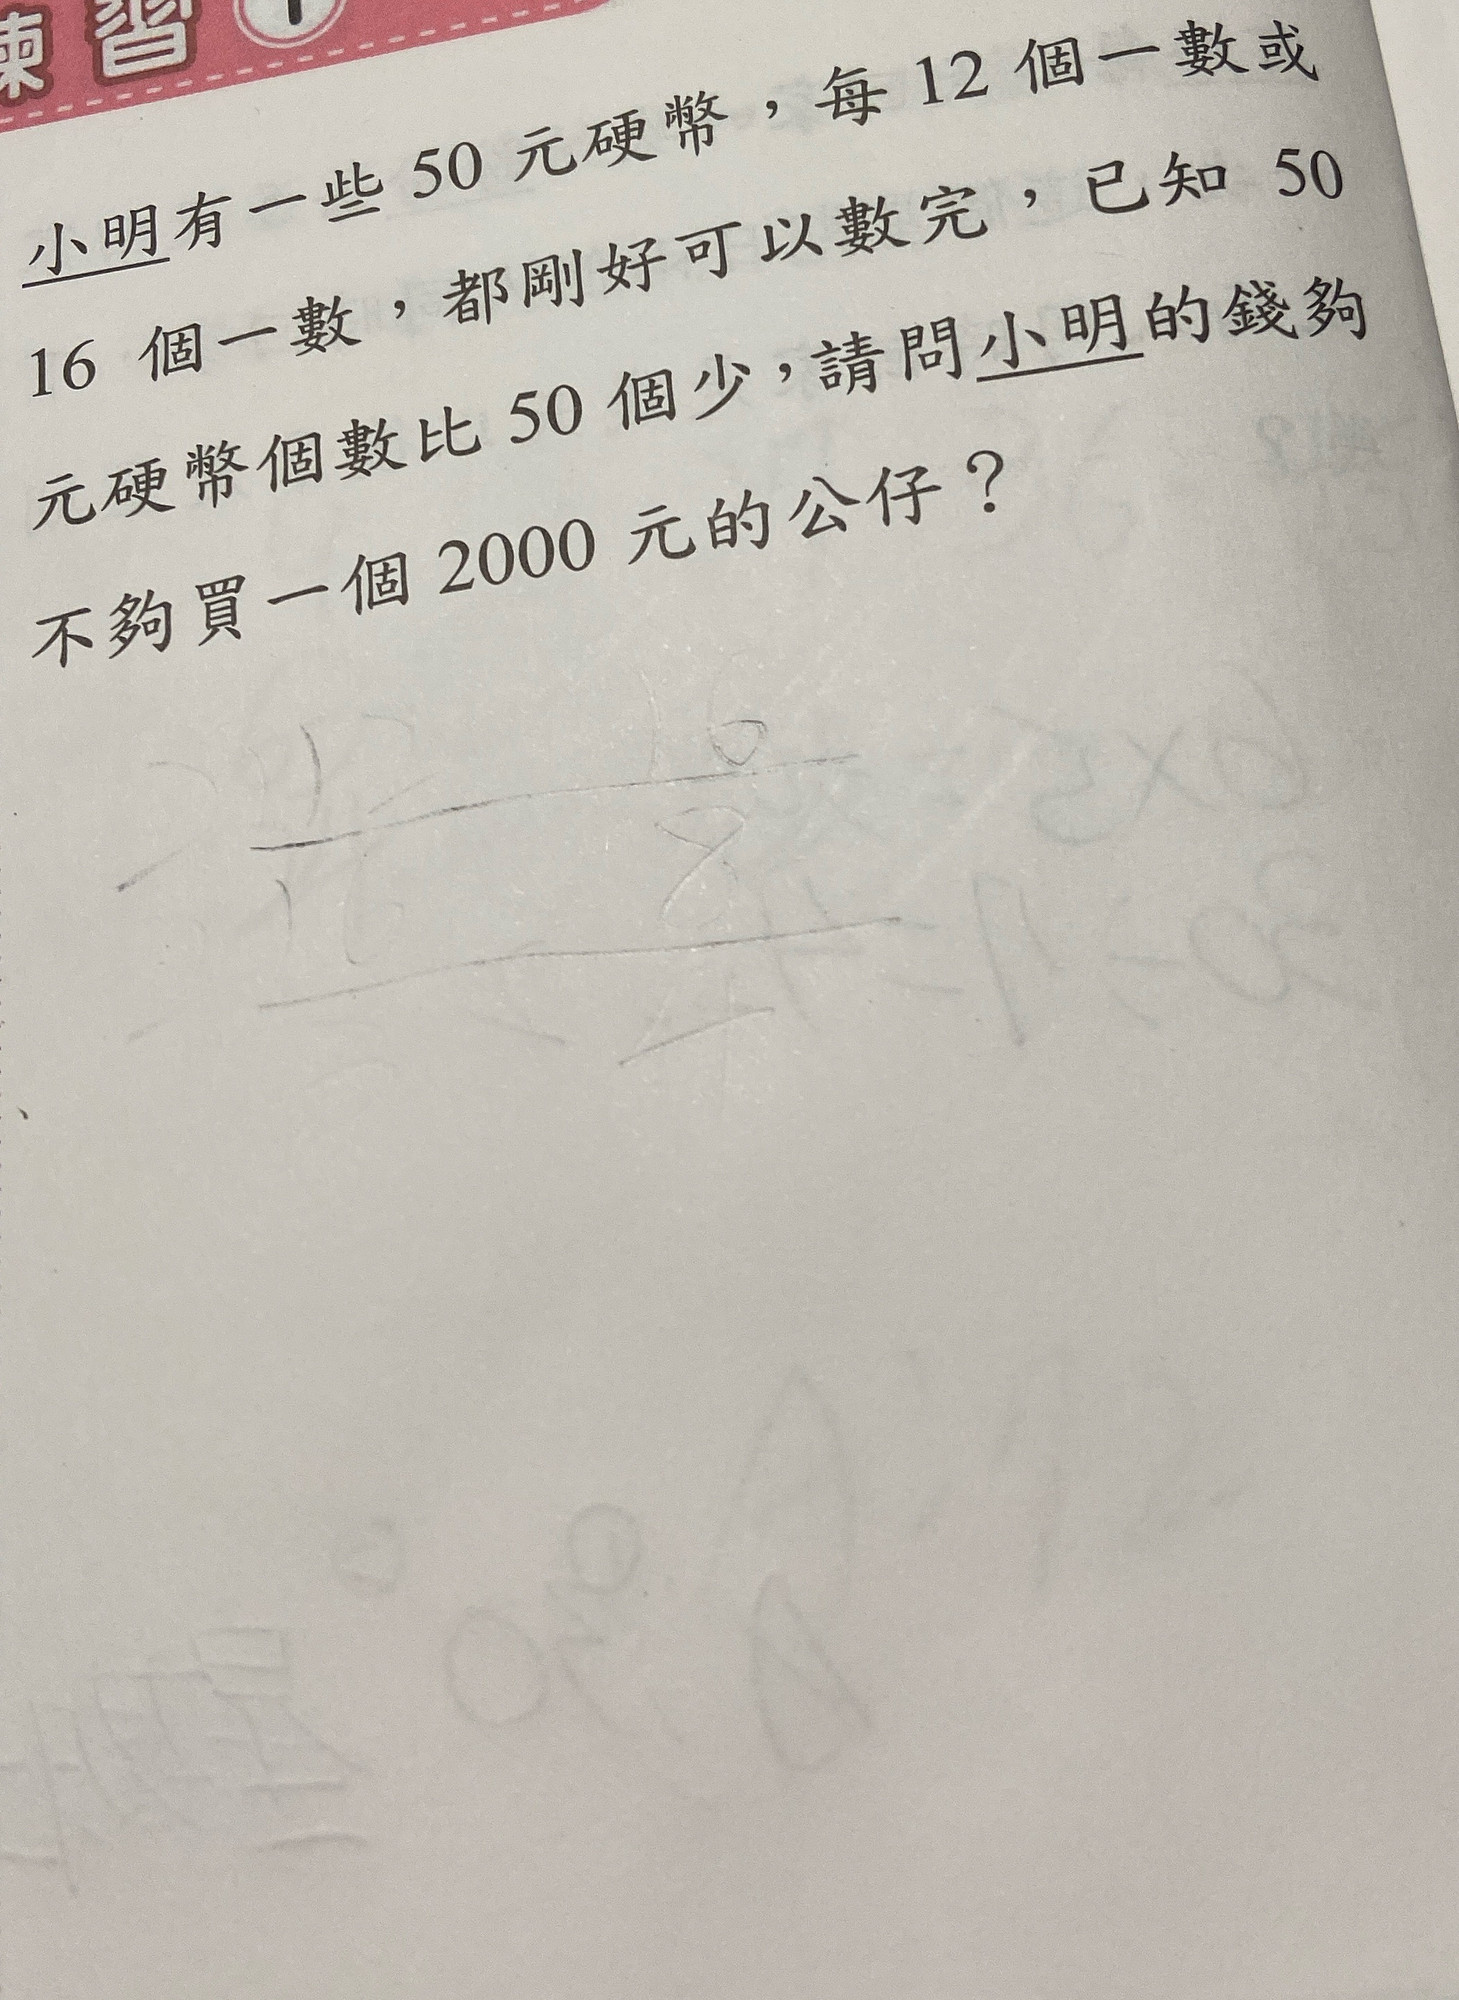 練習1
小明有一些 50 元硬幣，每 12 個一數或
16 個一數，都剛好可以數完，已知 50
元硬幣個數比 50 個少，請問小明的錢夠
不夠買一個 2000 元的公仔？